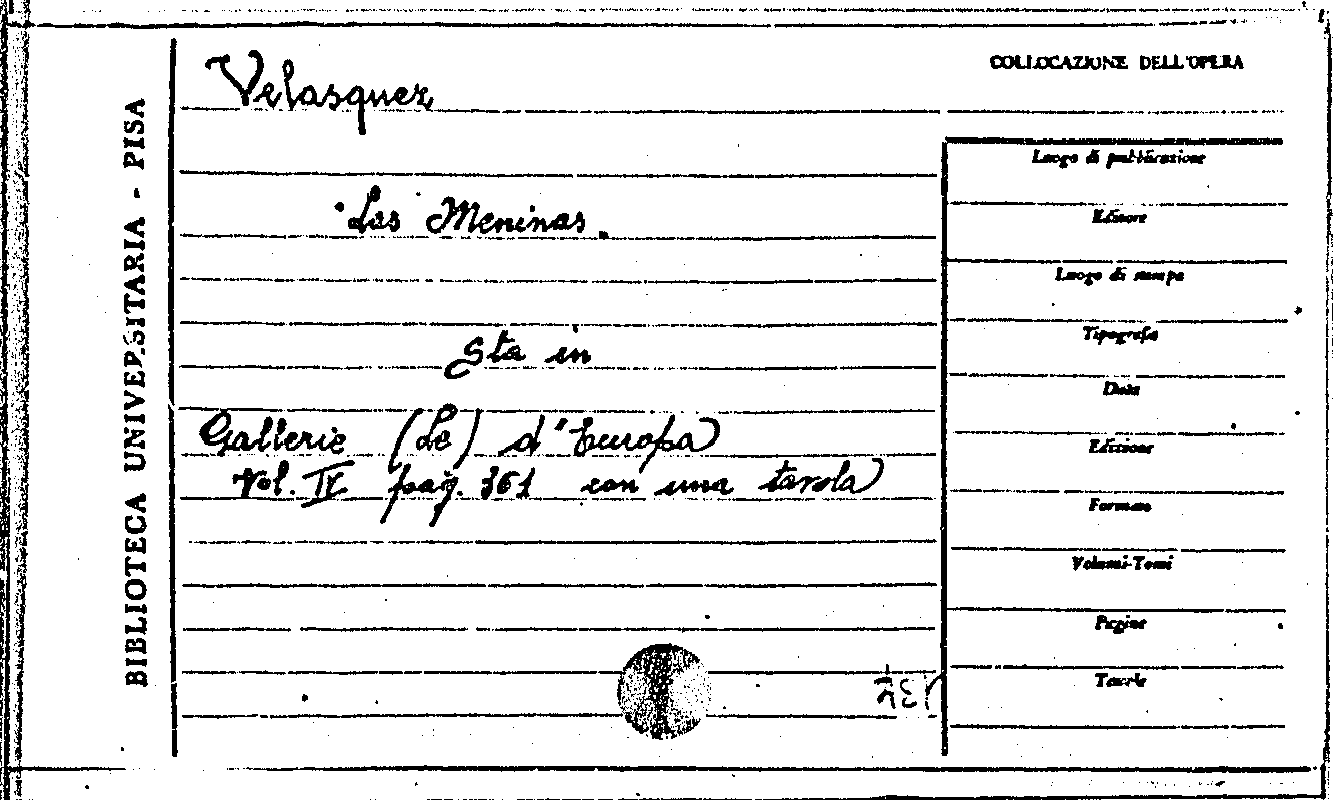 BIBLIOTECA UNIVERSITARIA - PISA
Velasquez
COLLOCAZIONE DELL'OPERA
Las Meninas.
Sta in
Gallerie (Le) d'Europa
Vol. IV pag. 361 con una tavola
Luogo di pubblicazione
Editore
Luogo di stampa
Tipografo
Data
Edizione
Formato
Volumi-Tomi
Pagine
Tavole